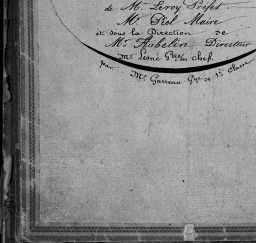 de M. Leroy Préfet
Mr. Piel Maire
et sous la Direction de
Mr. Robelin, Directeur
Mr. Lesné Gtre. en chef.
par Mr. Garreau Gtre. de 1re Classe